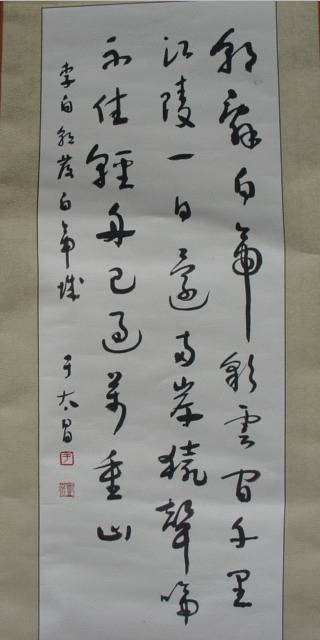 朝辭白帝彩雲間千里
江陵一日還兩岸猿聲啼
不住輕舟已過萬重山
李白朝發白帝城 于太昌